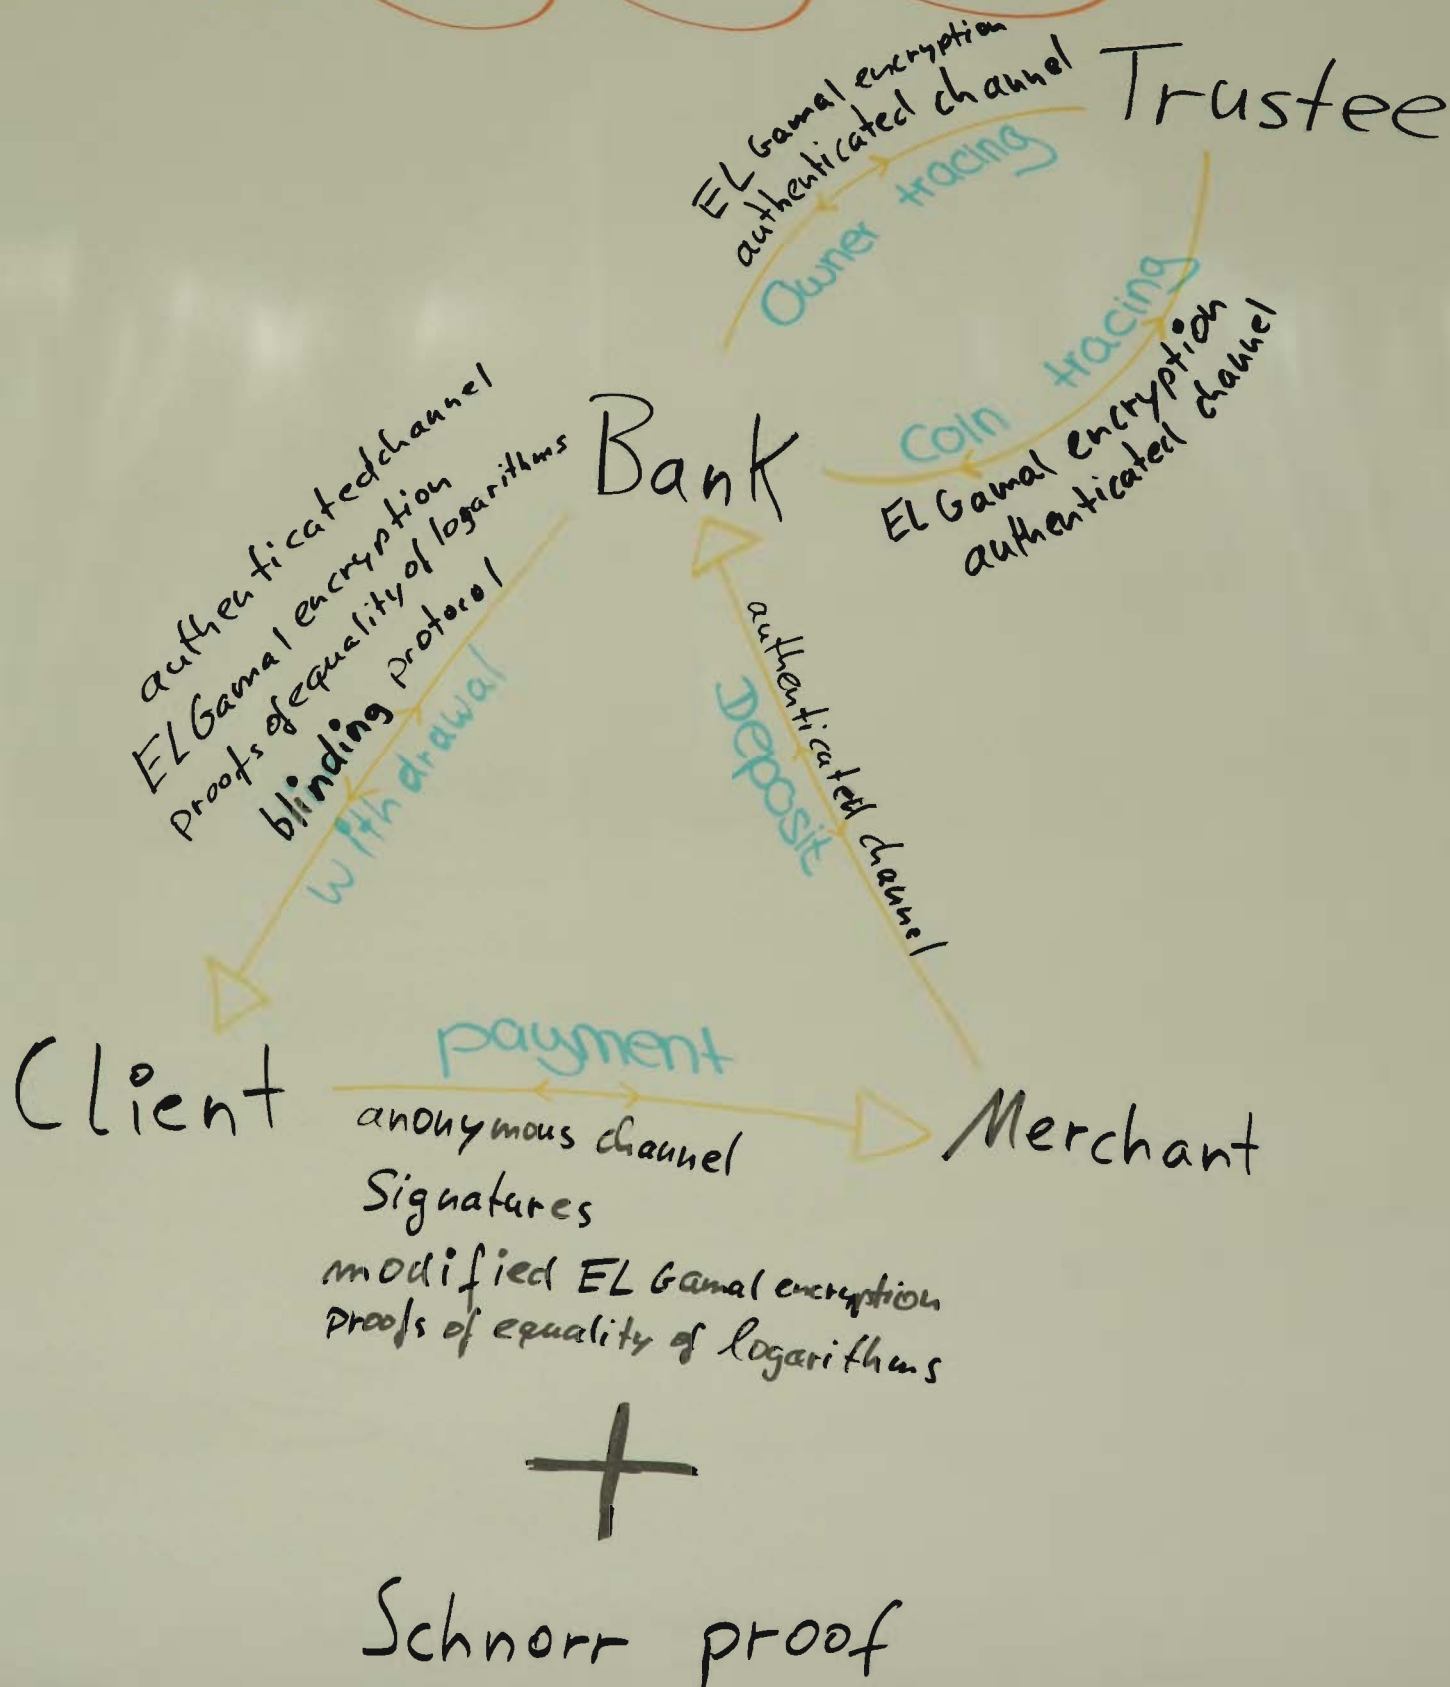 EL Gamal encryption
authenticated channel
Trustee
Owner tracing
Coin tracing
EL Gamal encryption
authenticated channel
Bank
authenticated channel
EL Gamal encryption
proofs of equality of logarithms
blinding protocol
withdrawal
authenticated channel
Deposit
Client
payment
Merchant
anonymous channel
Signatures
modified EL Gamal encryption
proofs of equality of logarithms
+
Schnorr proof